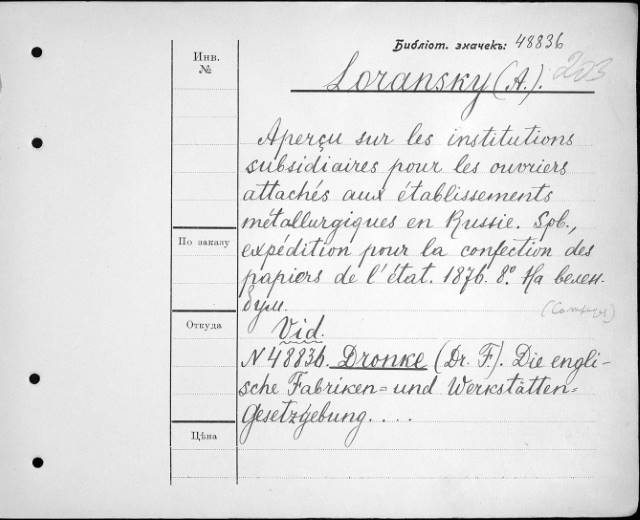 Библіот. значекъ: 48836
203
Инв.
№
Loransky (A.).
Aperçu sur les institutions
subsidiaires pour les ouvriers
attachés aux établissements
métallurgiques en Russie. Spb.,
По заказу
expédition pour la confection des
papiers de l'état. 1876. 8º. На велен-
бум.
Откуда
Vid.
N 48836. Dronke (Dr. F.). Die engli-
sche Fabriken= und Werkstätten=
Gesetzgebung. . . .
Цѣна